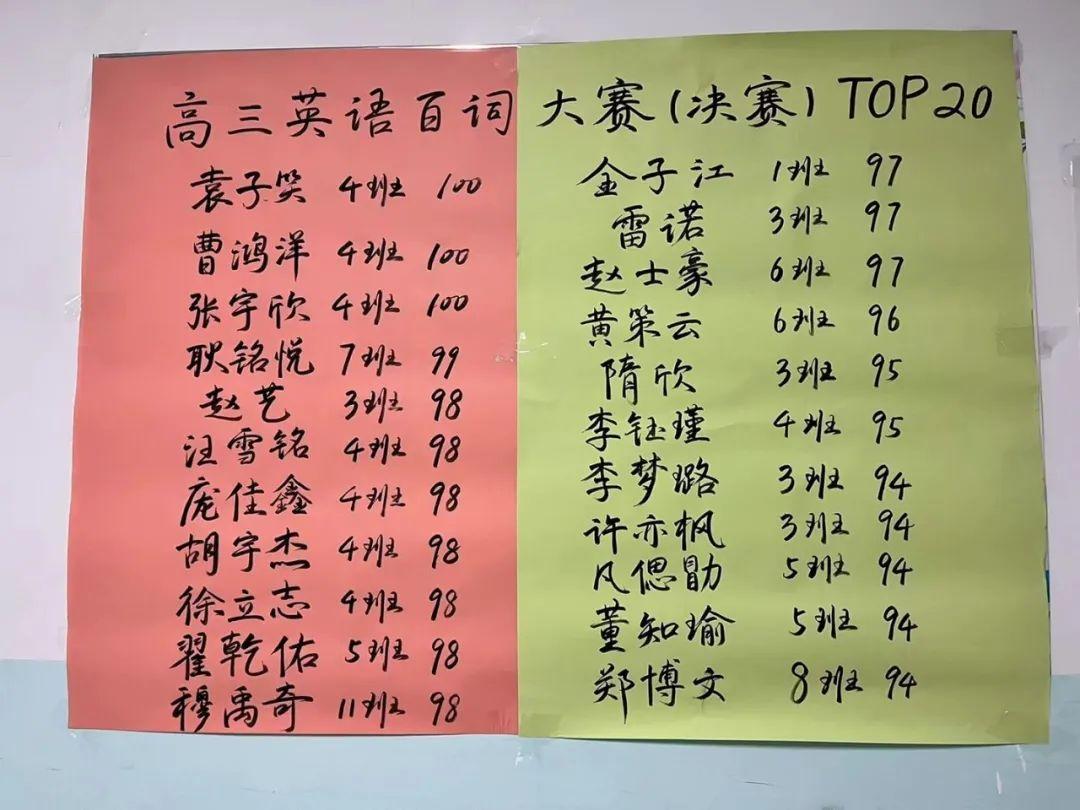 高三英语百词大赛(决赛)TOP20
袁子笑 4班 100
曹鸿洋 4班 100
张宇欣 4班 100
耿铭悦 7班 99
赵艺 3班 98
汪雪铭 4班 98
庞佳鑫 4班 98
胡宇杰 4班 98
徐立志 4班 98
翟乾佑 5班 98
穆禹奇 11班 98
金子江 1班 97
雷诺 3班 97
赵士豪 6班 97
黄策云 6班 96
隋欣 3班 95
李钰瑾 4班 95
李梦璐 3班 94
许亦枫 3班 94
凡偲勖 5班 94
董知瑜 5班 94
郑博文 8班 94